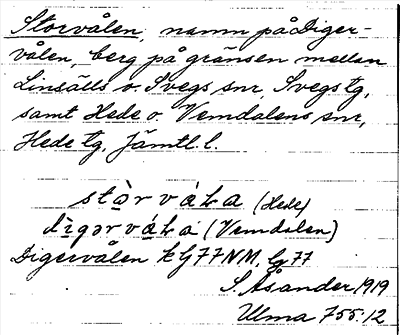 Storvålen, namn på Diger-
vålen, berg på gränsen mellan
Linsälls o. Svegs snr, Svegs tg,
samt Hede o. Vemdalens snr,
Hede tg, Jämtl. l.
stòrváɫa (Hede)
dìgərváɫa (Vemdalen)
Digervålen k G77 NM, Lg 77
S. Åsander 1919
Ulma 755:12